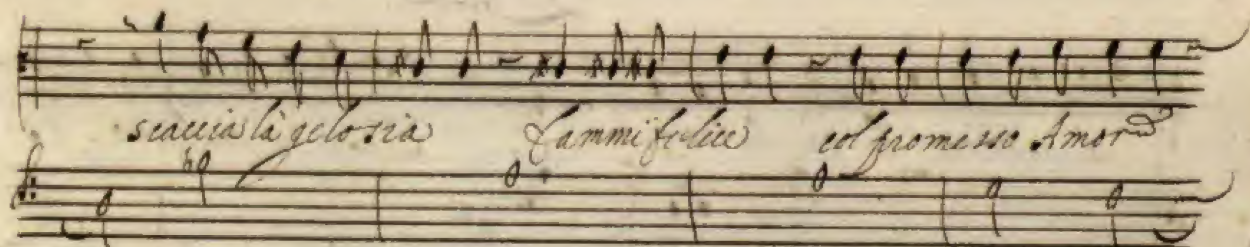 scaccia la gelosia fammi felice col promesso Amor